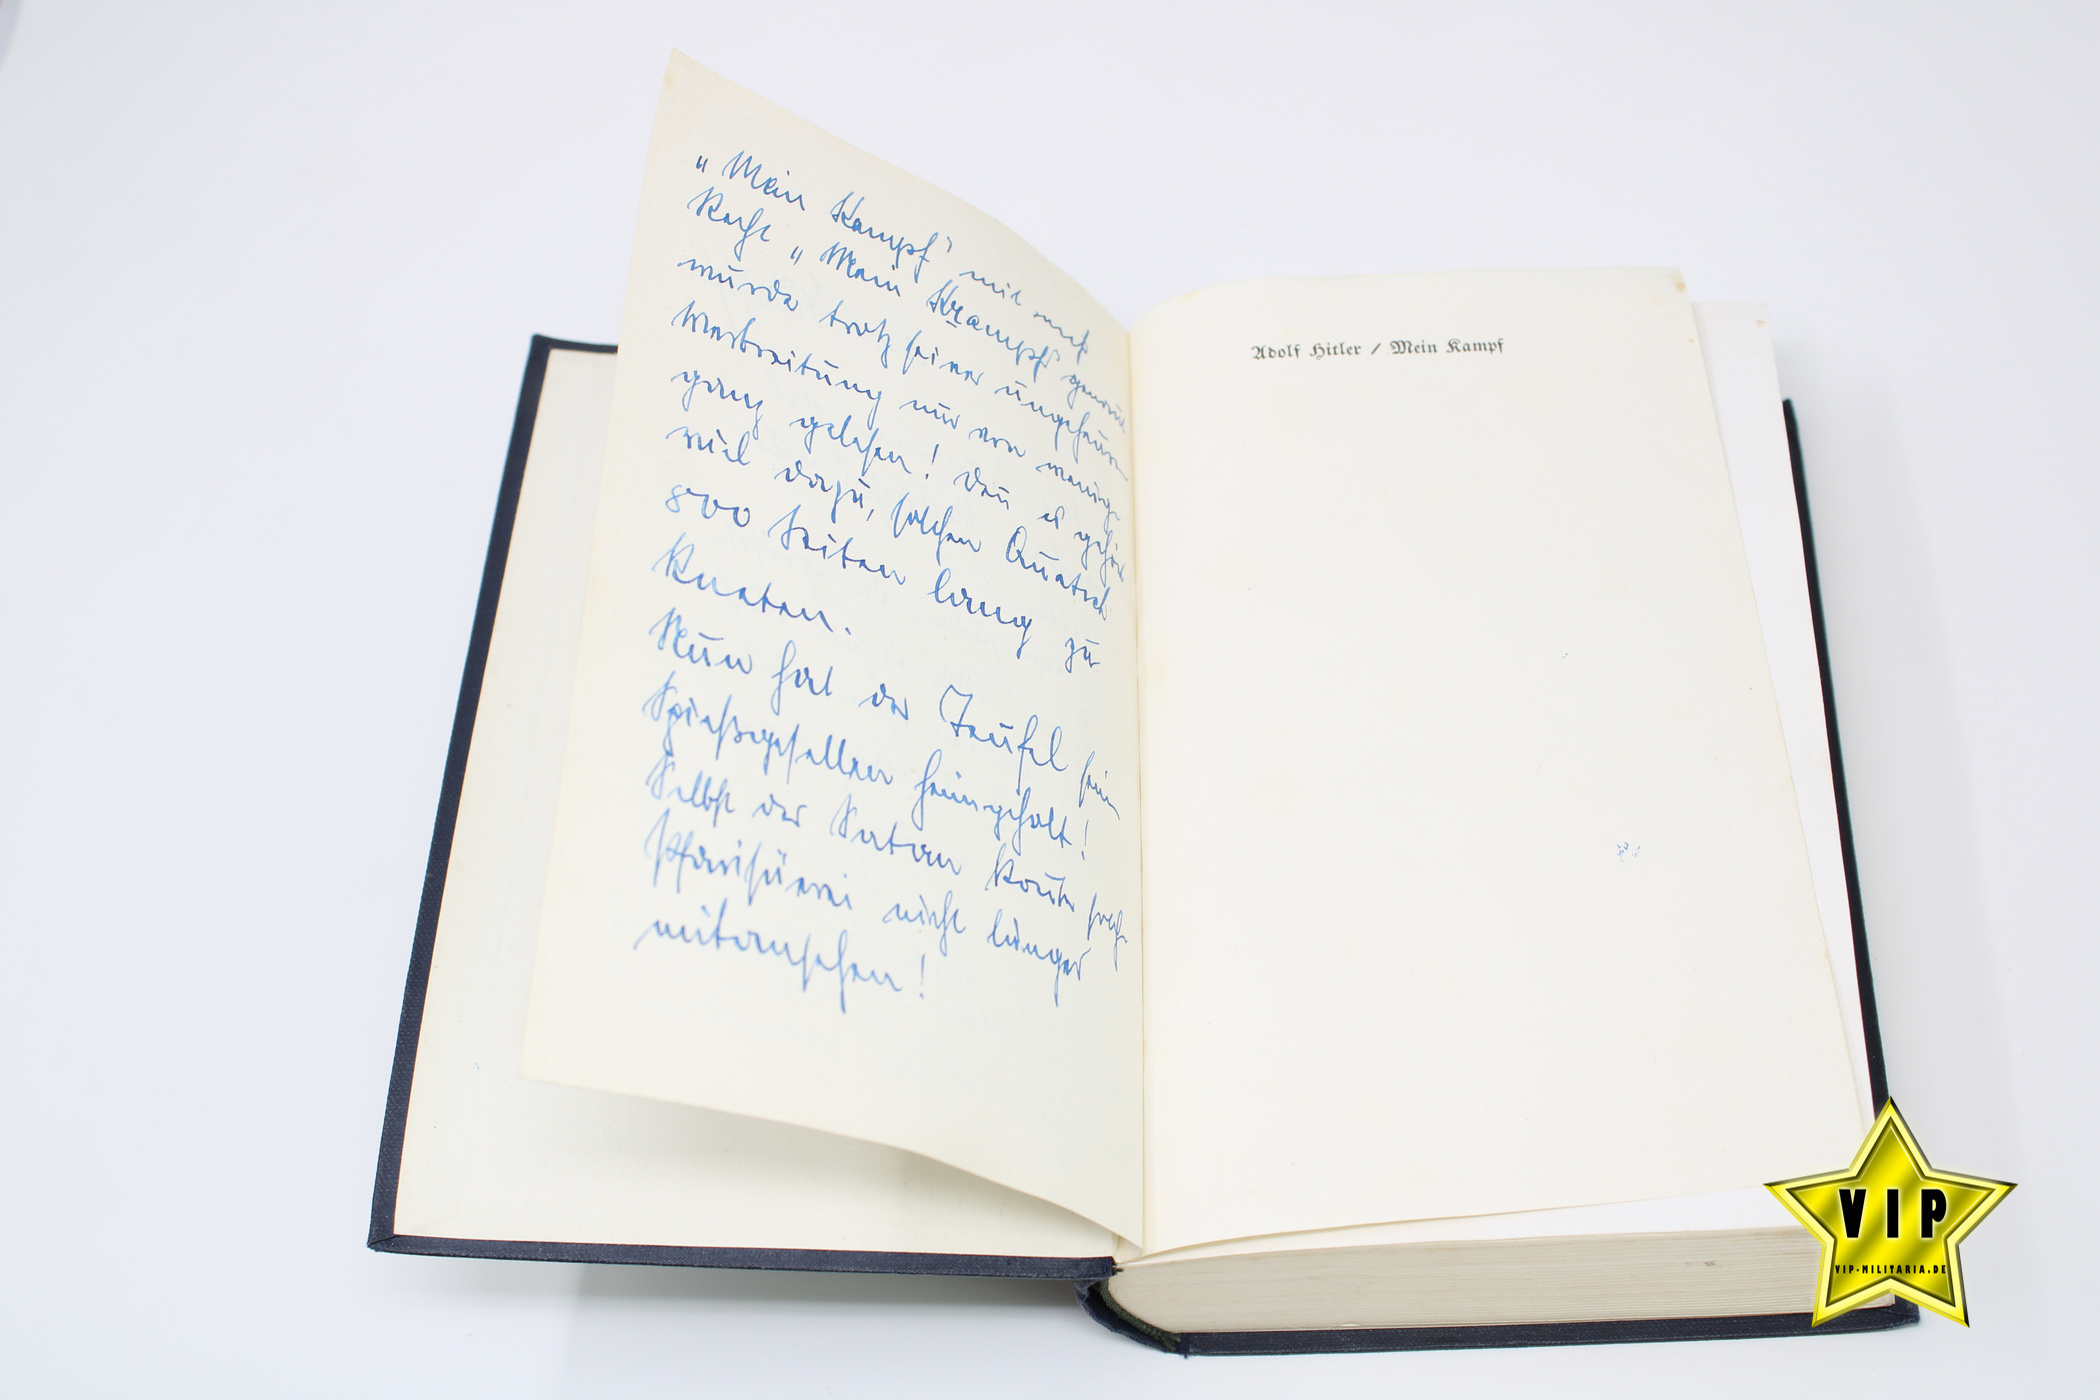 „Mein Kampf" mit mehr
Recht „Mein Krampf" genannt
wurde trotz seiner ungeheuren
Verbreitung nur von wenigen
ganz gelesen! Den es gehört
viel dazu, solchen Quatsch
800 Seiten lang zu
Kneten.
Nun hat der Teufel sein
Spießgesellen heimgeholt!
Selbst der Satan konnte solch
Pharisäerei nicht länger
mitansehen!
Adolf Hitler / Mein Kampf
VIP
VIP-MILITARIA.DE